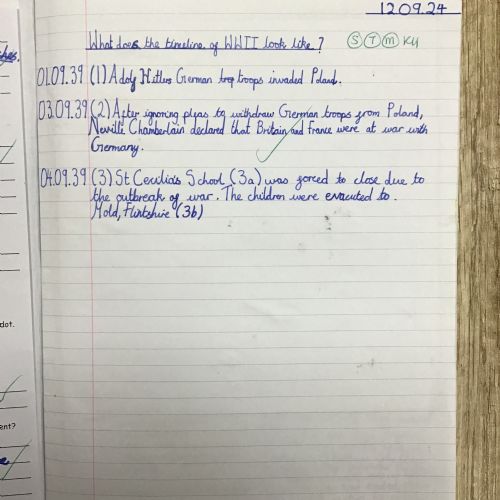 12.09.24
What does the timeline of WWII look like? S T M KH
01.09.39 (1) Adolf Hitlers German trop troops invaded Poland.
03.09.39 (2) After ignoring plyas to withdraw German troops from Poland,
Neville Chamberlain declared that Britain and France were at war with
Germany.
04.09.39 (3) St Cecilia's School (3a) was forced to close due to
the outbreak of war. The children were evacuted to.
Mold, Flintshire (3b)
dot.
ent?